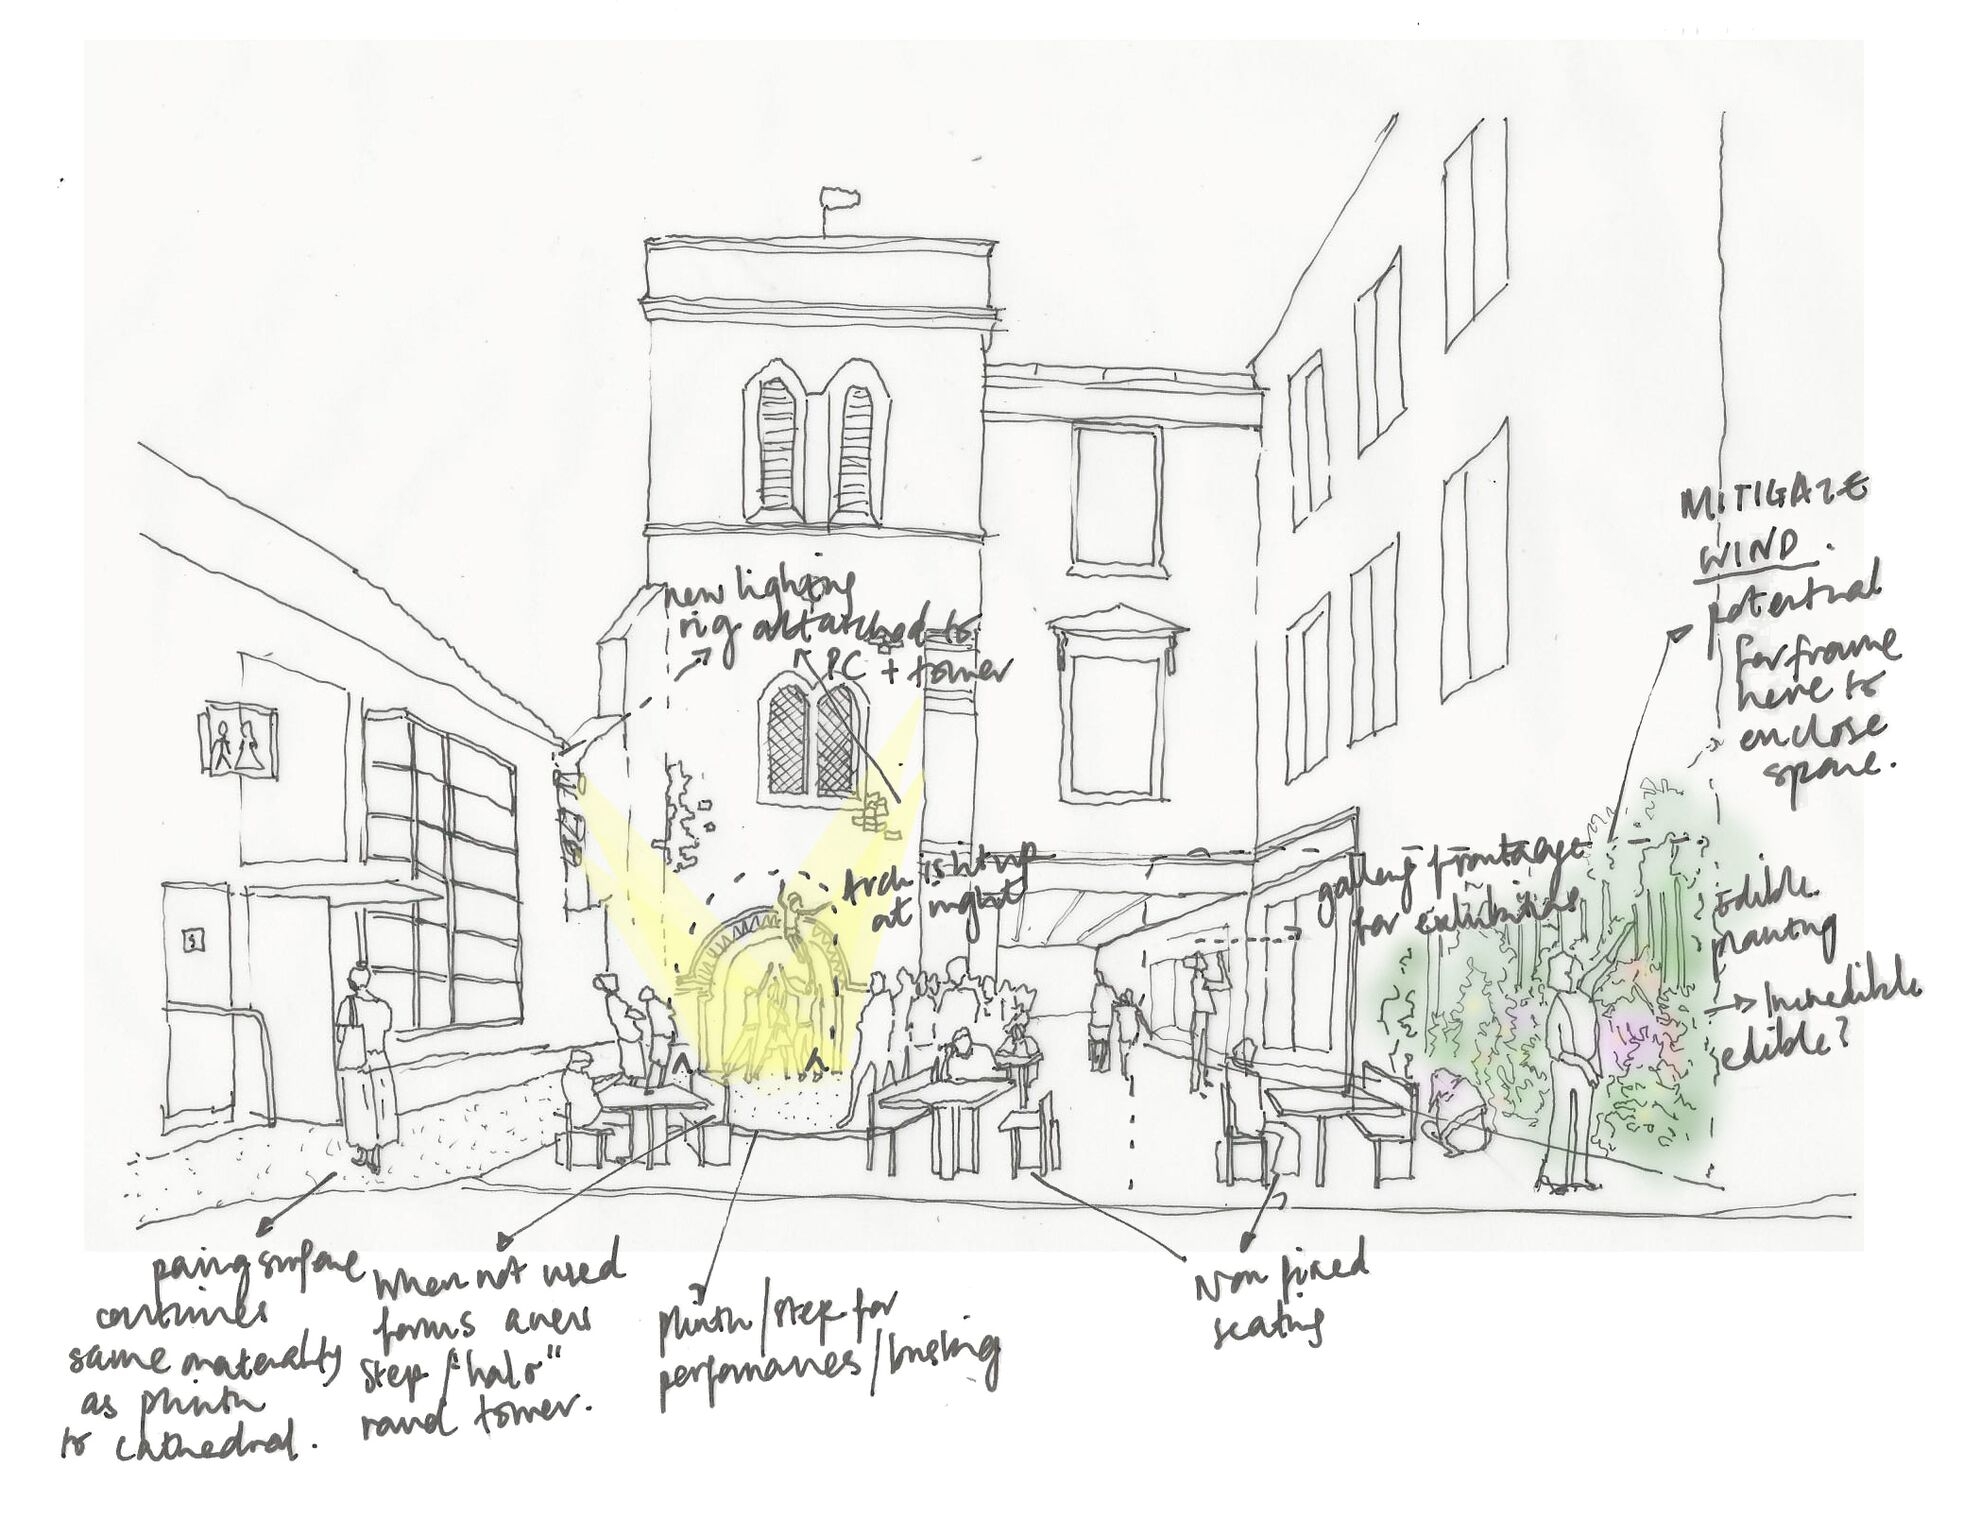 new lighting
rig attached to
PC + tower
Arch is lit up
at night
gallery frontage
for exhibitions
MITIGATE
WIND.
potential
for frame
here to
enclose
space.
Edible
planting
→ Incredible
edible?
paving surface
continues
same materality
as plinth
to cathedral.
When not used
forms a
step / "halo"
round tower.
plinth/step for
performances/busking
Non fixed
seating